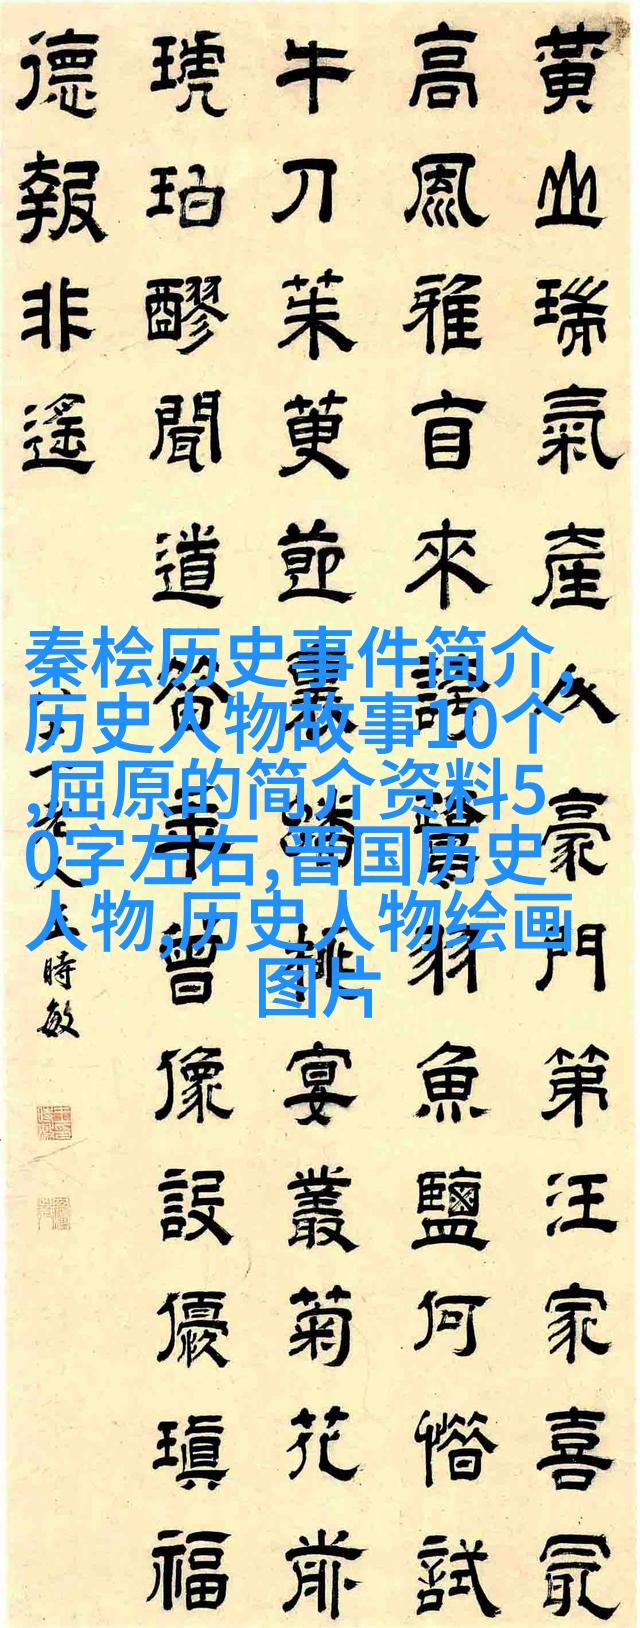 黃山瑞氣產人豪門第汪家喜最
高風雅來羽魚鹽何試
牛刀茱萸節裏宴叢菊花前
琥珀醪聞道年曾像設優福
德報非遙
王時敏
秦桧历史事件简介,
历史人物故事10个
,屈原的简介资料5
0字左右,晋国历史
人物,历史人物绘画
图片